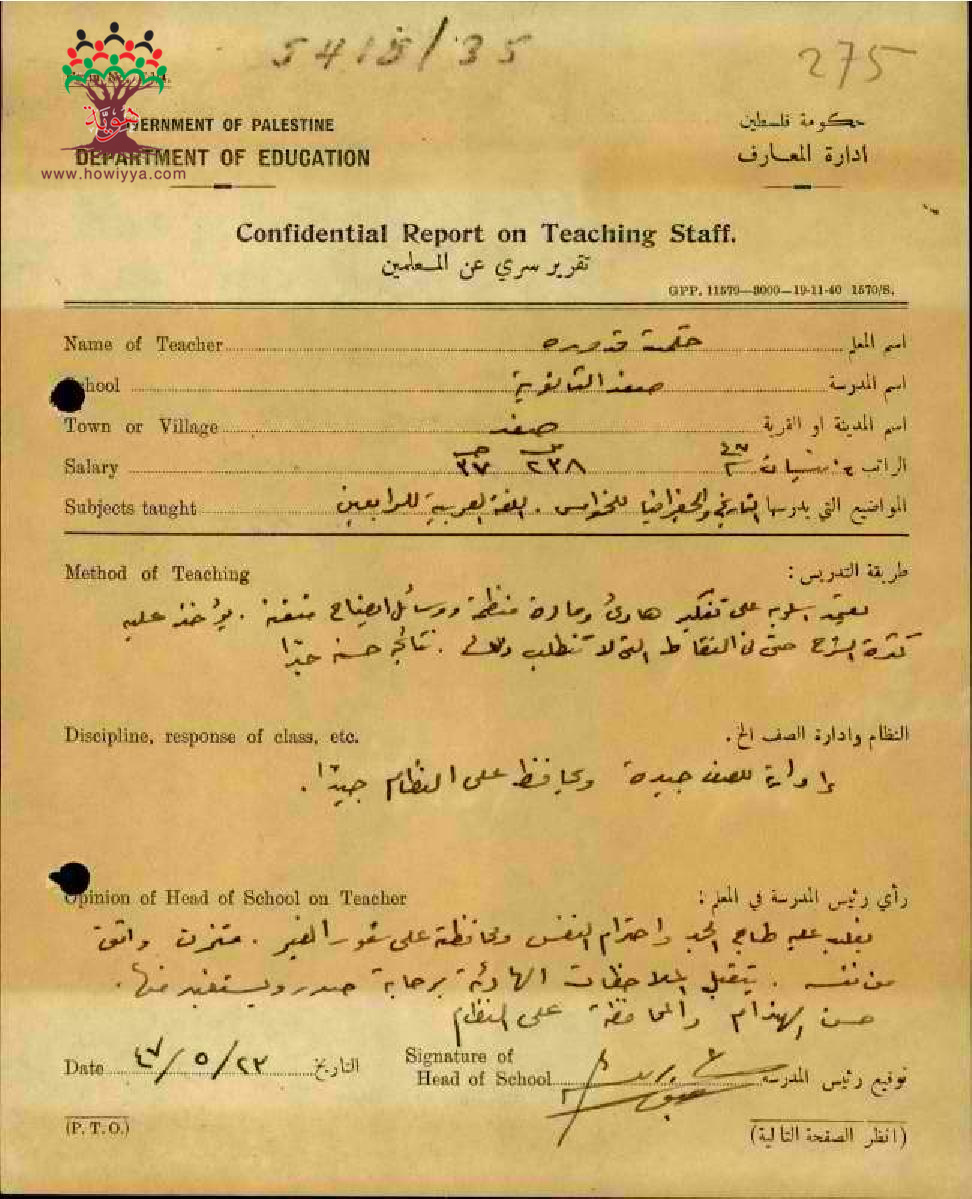 5415/35
275
هويّة
www.howiyya.com
GOVERNMENT OF PALESTINE
حكومة فلسطين
DEPARTMENT OF EDUCATION
ادارة المعارف
Confidential Report on Teaching Staff.
تقرير سري عن المعلمين
GPP. 11579—3000—19-11-40 1570/S.
Name of Teacher حكمت قدوره اسم المعلم
School صفد الثانوية اسم المدرسة
Town or Village صفد اسم المدينة او القرية
Salary ٣٧ ٢٣٨ الراتب
Subjects taught التاريخ والجغرافيا للخوامس . اللغة العربية للرابعين المواضيع التي يدرسها
Method of Teaching طريقة التدريس :
يعتمد اسلوبه على تفكير هادئ ومادة منظمة ووسائل ايضاح متقنة . يؤخذ عليه
كثرة الشرح حتى في النقاط التي لا تتطلب ذلك . نتائجه حسنة جدًا
Discipline, response of class, etc. النظام وادارة الصف الخ .
إدارته للصف جيدة ويحافظ على النظام جيدًا .
Opinion of Head of School on Teacher رأي رئيس المدرسة في المعلم :
يغلب عليه طابع الجد واحترام النفس ومحافظة على شعور الغير . متزن واثق
من نفسه . يتقبل الملاحظات الهادئة برحابة صدر ويستفيد منها .
حسن الهندام والمحافظة على النظام
Date ٢٣/٥/٤٧ التاريخ
Signature of
Head of School توقيع رئيس المدرسة
(P. T. O.) (انظر الصفحة التالية)